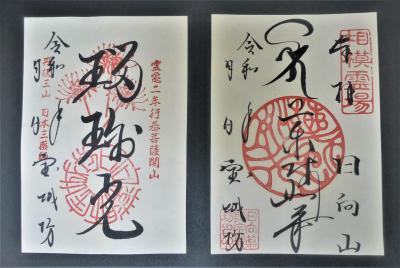 靈亀二年行基菩薩開山
瑠璃光
令和 年 月 日 宝城坊
日本三薬師
相模靈場
奉拝 日向山
令和 年 月 日 宝城坊